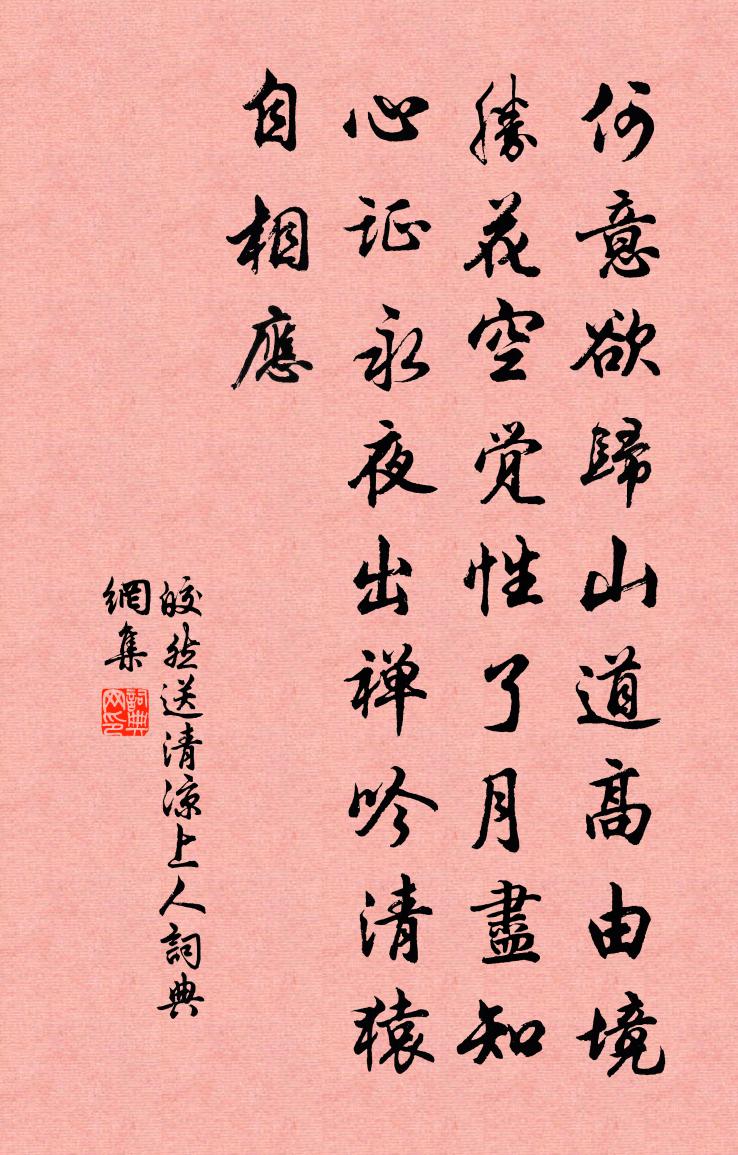 何意欲歸山道高由境
勝花空覺性了月盡知
心证永夜出禅吟清猿
自相應
皎然送清凉上人詞典
網集
詞典網印